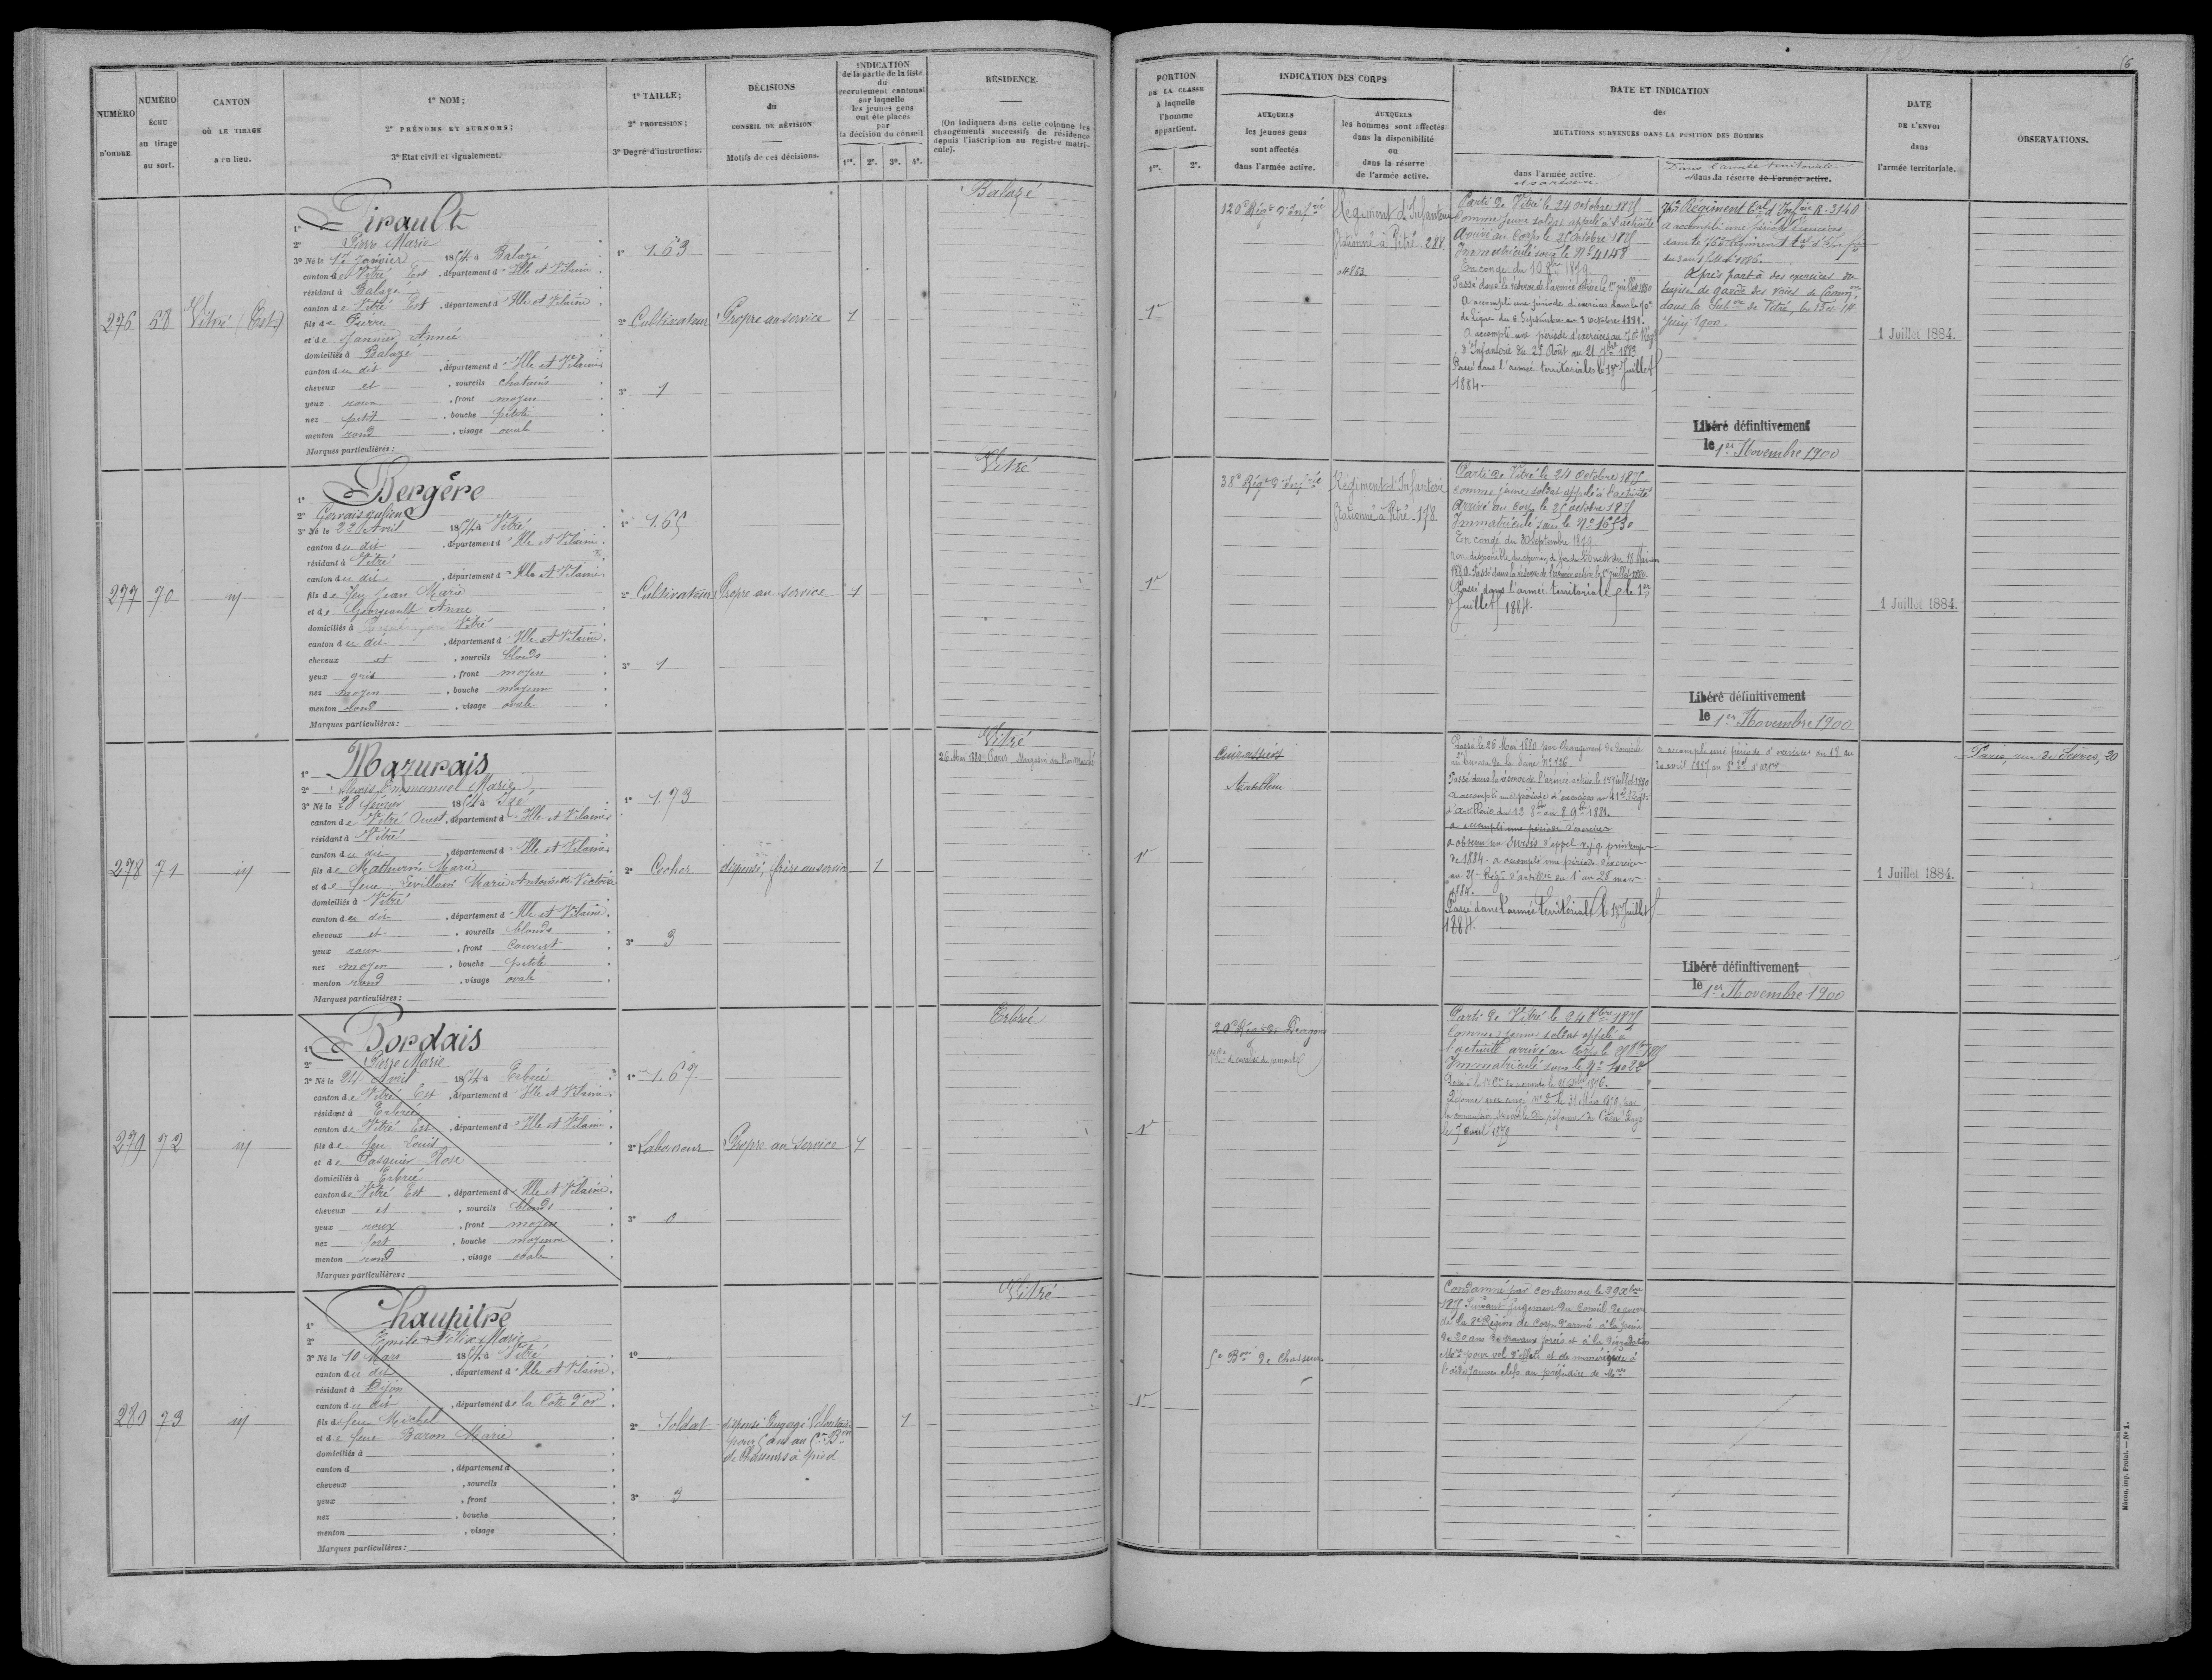 NUMÉRO D'ORDRE
NUMÉRO ÉCHU au tirage au sort.
CANTON OÙ LE TIRAGE a eu lieu.
1º NOM;
2º PRÉNOMS ET SURNOMS;
3º Etat civil et signalement.
1º TAILLE;
2º PROFESSION;
3º Degré d'instruction.
DÉCISIONS du CONSEIL DE RÉVISION
Motifs de ces décisions.
INDICATION de la partie de la liste du recrutement cantonal sur laquelle les jeunes gens ont été placés par la décision du conseil.
1re. 2e. 3e. 4e.
RÉSIDENCE.
(On indiquera dans cette colonne les changements successifs de résidence depuis l'inscription au registre matricule).
PORTION DE LA CLASSE à laquelle l'homme appartient.
1re. 2e.
INDICATION DES CORPS
AUXQUELS les jeunes gens sont affectés dans l'armée active.
AUXQUELS les hommes sont affectés dans la disponibilité ou dans la réserve de l'armée active.
DATE ET INDICATION des MUTATIONS SURVENUES DANS LA POSITION DES HOMMES
dans l'armée active.
Dans l'armée territoriale
et dans la réserve de l'armée active.
DATE DE L'ENVOI dans l'armée territoriale.
OBSERVATIONS.
276 68 Vitré (Est)
1º Pirault
2º Pierre Marie
3º Né le 17 Janvier 1854 à Balazé
canton de Vitré Est, département d'Ille et Vilaine
résidant à Balazé
canton de Vitré Est, département d'Ille et Vilaine
fils de Pierre
et de Jannier Année
domiciliés à Balazé
canton du dit, département d'Ille et Vilaine
cheveux et, sourcils chatains
yeux roux, front moyen
nez petit, bouche petite
menton rond, visage ovale
Marques particulières:
1º 1.63
2º Cultivateur
3º 1
Propre au service
1
Balazé
1re
120e Régt d'Infrie
Régiment d'Infanterie
stationné à Vitré. 288.
Parti de Vitré le 24 octobre 1875
Comme jeune soldat appelé à l'activité
Arrivé au Corps le 25 octobre 1875
Immatriculé sous le Nº 4148
En congé du 10 1879.
Passé dans la réserve de l'armée active le 1er juillet 1880
A accompli une période d'exercices dans le 70e
de Ligne du 6 Septembre au 3 octobre 1881.
A accompli une période d'exercices au 70e Régt
d'Infanterie du 25 Août au 21 1883
Passé dans l'armée territoriale le 1er Juillet
1884.
76e Régiment tal d'Infrie R. 3140
A accompli une période d'exercices
dans le 76e Régiment tal d'Infrie
A pris part à des exercices du
service de garde des voies de Common
dans la Subon de Vitré, les 13 et 14
Juin 1900.
Libéré définitivement
le 1er Novembre 1900
1 Juillet 1884.
277 70 id
1º Bergère
2º Gervais Julien
3º Né le 22 Avril 1854 à Vitré
canton du dit, département d'Ille et Vilaine
résidant à Vitré
canton du dit, département d'Ille et Vilaine
fils de feu Jean Marie
et de Georgeault Anne
domiciliés à Vitré
canton du dit, département d'Ille et Vilaine
cheveux et, sourcils blonds
yeux gris, front moyen
nez moyen, bouche moyenne
menton rond, visage ovale
Marques particulières:
1º 1.65
2º Cultivateur
3º 1
Propre au service
1
Vitré
1re
38e Régt d'Infrie
Régiment d'Infanterie
stationné à Vitré. 178
Parti de Vitré le 24 octobre 1875
comme jeune soldat appelé à l'activité
Arrivé au Corps le 25 octobre 1875
Immatriculé sous le Nº 16530
En congé du 30 Septembre 1879.
Non disponible du chemin de fer de l'Ouest du 18 Mai
1880. Passé dans la réserve de l'armée active le 1er juillet 1880.
Passé dans l'armée territoriale le 1er
Juillet 1884.
Libéré définitivement
le 1er Novembre 1900
1 Juillet 1884.
278 71 id
1º Mazurais
2º Louis Emmanuel Marie
3º Né le 28 février 1854 à Izé
canton de Vitré Ouest, département d'Ille et Vilaine
résidant à Vitré
canton du dit, département d'Ille et Vilaine
fils de Mathurin Marie
et de feue Levillain Marie Antoinette Victoire
domiciliés à Vitré
canton du dit, département d'Ille et Vilaine
cheveux et, sourcils blonds
yeux roux, front couvert
nez moyen, bouche petite
menton rond, visage ovale
Marques particulières:
1º 1.73
2º Cocher
3º 3
dispensé, frère au service
1
Vitré
26 Mai 1880 Paris, Magasin du Bon Marché
1re
Cuirassiers
Artillerie
Passé le 26 Mai 1880 par changement de domicile
au bureau de la Seine Nº 726
Passé dans la réserve de l'armée active le 1er juillet 1880
A accompli une période d'exercices au 11e Régt
d'artillerie du 12 8bre au 8 9bre 1881.
a accompli une période d'exercices
a obtenu un sursis d'appel printemps
de 1884. a accompli une période d'exercices
au Régt d'artillie du 1er au 28 mars
1884.
Passé dans l'armée territoriale le 1er Juillet
1884.
a accompli une période d'exercices du 18 au
30 avril 1887
Libéré définitivement
le 1er Novembre 1900
1 Juillet 1884.
Paris, rue de Sèvres, 20
279 72 id
1º Pordais
2º Pierre Marie
3º Né le 24 Avril 1854 à Erbrée
canton de Vitré Est, département d'Ille et Vilaine
résidant à Erbrée
canton de Vitré Est, département d'Ille et Vilaine
fils de feu Louis
et de Pasquier Rose
domiciliés à Erbrée
canton de Vitré Est, département d'Ille et Vilaine
cheveux et, sourcils blonds
yeux roux, front moyen
nez fort, bouche moyenne
menton rond, visage ovale
Marques particulières:
1º 1.67
2º Laboureur
3º 0
Propre au Service
1
Erbrée
1re
20e Régt de Dragons
Cie de cavaliers de remonte
Parti de Vitré le 24 8bre 1875
Comme jeune soldat appelé à
l'activité arrivé au Corps le 8bre 1875
Immatriculé sous le Nº 4022
Réformé avec congé Nº 2 le 31 Mars 1879 par
la commission spéciale de réforme de Caen. Rayé
le 7 avril 1879
280 73 id
1º Chaupitré
2º Emile Félix Marie
3º Né le 10 Mars 1854 à Vitré
canton du dit, département d'Ille et Vilaine
résidant à Dijon
canton du dit, département de la Côte d'or
fils de feu Michel
et de feue Baron Marie
domiciliés à
canton d, département d
cheveux, sourcils
yeux, front
nez, bouche
menton, visage
Marques particulières:
1º
2º Soldat
3º 3
dispensé Engagé Volontaire
pour 5 ans au 5e Bon
de Chasseurs à pied
1
Vitré
1re
5e Bon de Chasseurs
Condamné par contumace le 29 Xbre
1875 Suivant jugement du Conseil de guerre
de la 8e Région de Corps d'armée à la peine
de 20 ans de travaux forcés et à la dégradation
Mre pour vol d'effets et de numéraire à
l'aide fausses clefs au préjudice de Mres
Mâcon, imp. Protat. — Nº 1.